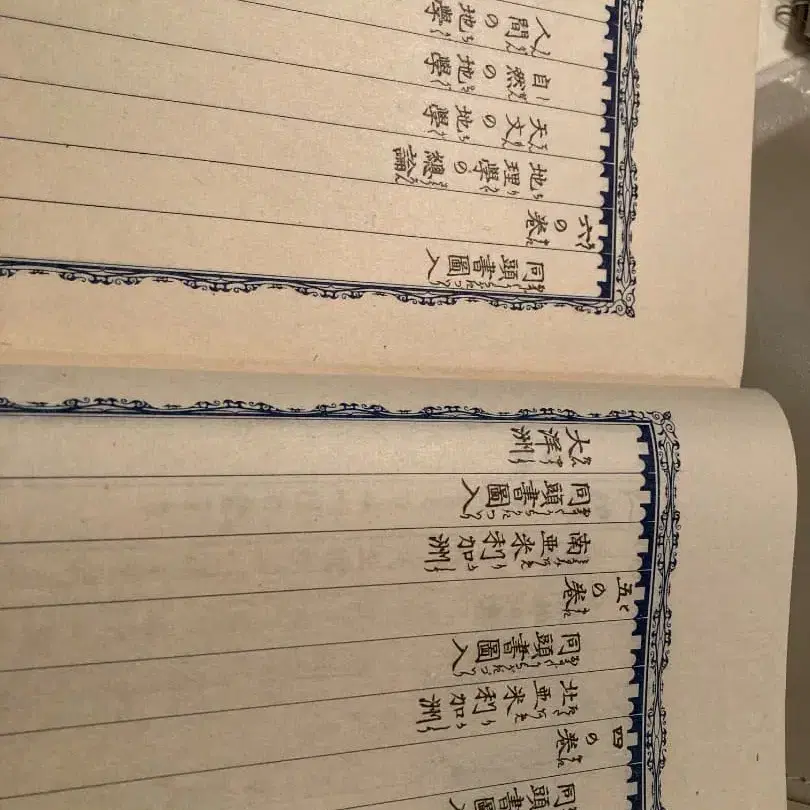 同頭
四の巻
北亜米利加洲
同頭書圖入
五の巻
南亜米利加洲
同頭書圖入
大洋洲
同頭書圖入
六の巻
地理學の總論
天文の地學
自然の地學
人間の地學